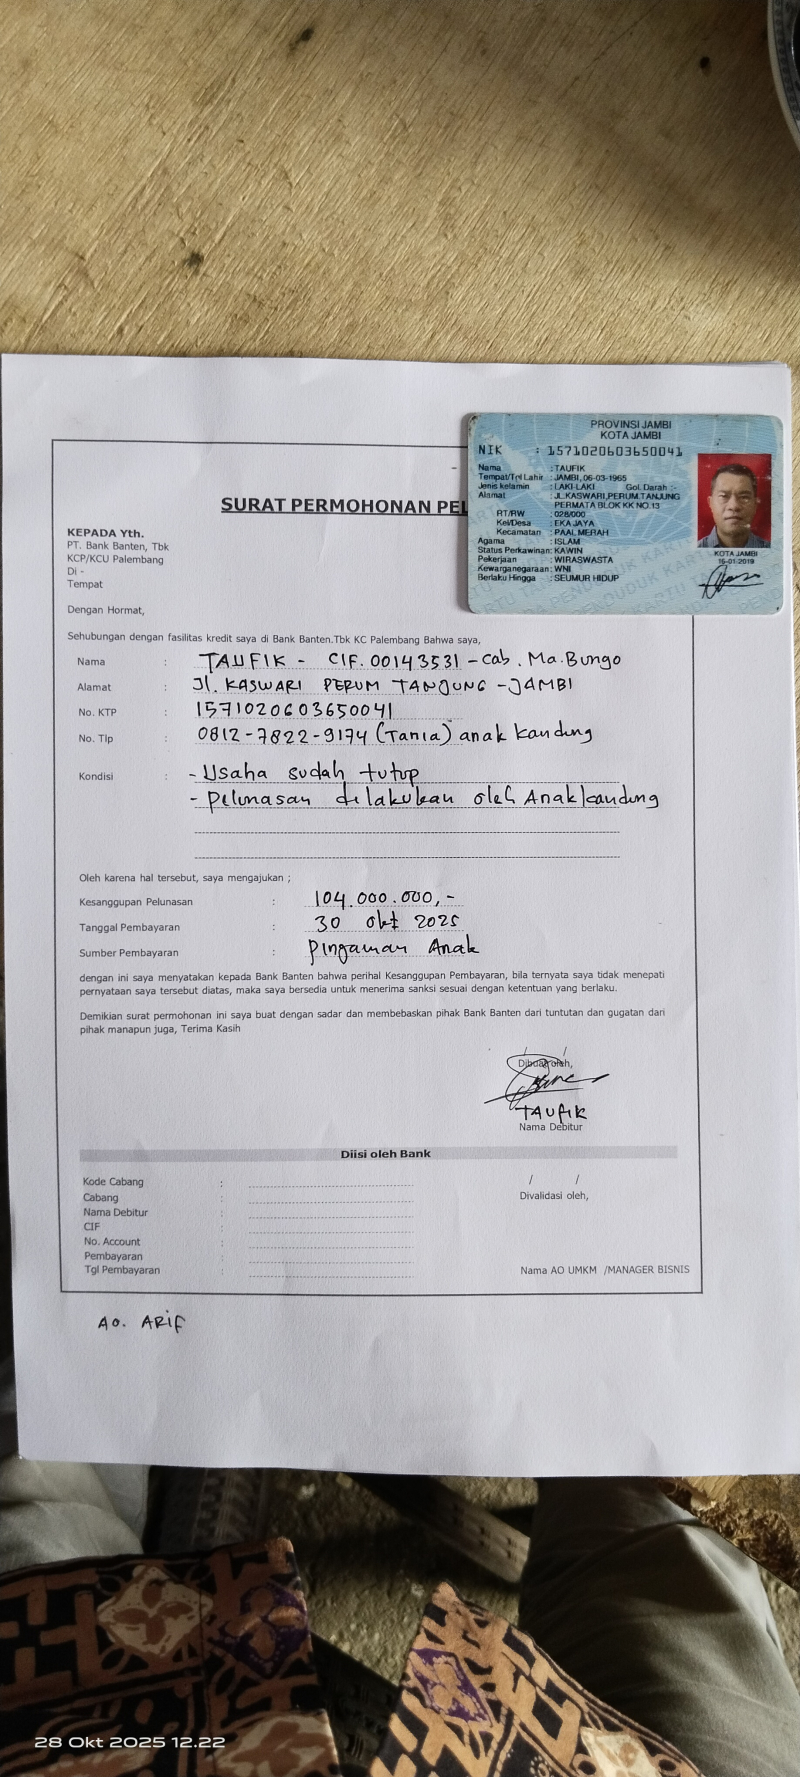 PROVINSI JAMBI
KOTA JAMBI
NIK : 1571020603650041
Nama : TAUFIK
Tempat/Tgl Lahir : JAMBI, 06-03-1965
Jenis kelamin : LAKI-LAKI Gol. Darah : -
Alamat : JL.KASWARI,PERUM.TANJUNG
PERMATA BLOK KK NO.13
RT/RW : 028/000
Kel/Desa : EKA JAYA
Kecamatan : PAAL MERAH
Agama : ISLAM
Status Perkawinan: KAWIN
Pekerjaan : WIRASWASTA
Kewarganegaraan: WNI
Berlaku Hingga : SEUMUR HIDUP
KOTA JAMBI
16-01-2019
SURAT PERMOHONAN PEL
KEPADA Yth.
PT. Bank Banten, Tbk
KCP/KCU Palembang
Di -
Tempat
Dengan Hormat,
Sehubungan dengan fasilitas kredit saya di Bank Banten.Tbk KC Palembang Bahwa saya,
Nama : TAUFIK - CIF. 00143531 - Cab. Ma. Bungo
Alamat : Jl. KASWARI PERUM TANJUNG - JAMBI
No. KTP : 1571020603650041
No. Tlp : 0812-7822-9174 (Tania) anak kandung
Kondisi : - Usaha sudah tutup
- Pelunasan dilakukan oleh Anak kandung
Oleh karena hal tersebut, saya mengajukan ;
Kesanggupan Pelunasan : 104.000.000,-
Tanggal Pembayaran : 30 Okt 2025
Sumber Pembayaran : Pinjaman Anak
dengan ini saya menyatakan kepada Bank Banten bahwa perihal Kesanggupan Pembayaran, bila ternyata saya tidak menepati
pernyataan saya tersebut diatas, maka saya bersedia untuk menerima sanksi sesuai dengan ketentuan yang berlaku.
Demikian surat permohonan ini saya buat dengan sadar dan membebaskan pihak Bank Banten dari tuntutan dan gugatan dari
pihak manapun juga, Terima Kasih
/ /
Dibuat oleh,
TAUFIK
Nama Debitur
Diisi oleh Bank
Kode Cabang : / /
Cabang : Divalidasi oleh,
Nama Debitur :
CIF :
No. Account :
Pembayaran :
Tgl Pembayaran : Nama AO UMKM /MANAGER BISNIS
AO. ARIF
28 Okt 2025 12.22